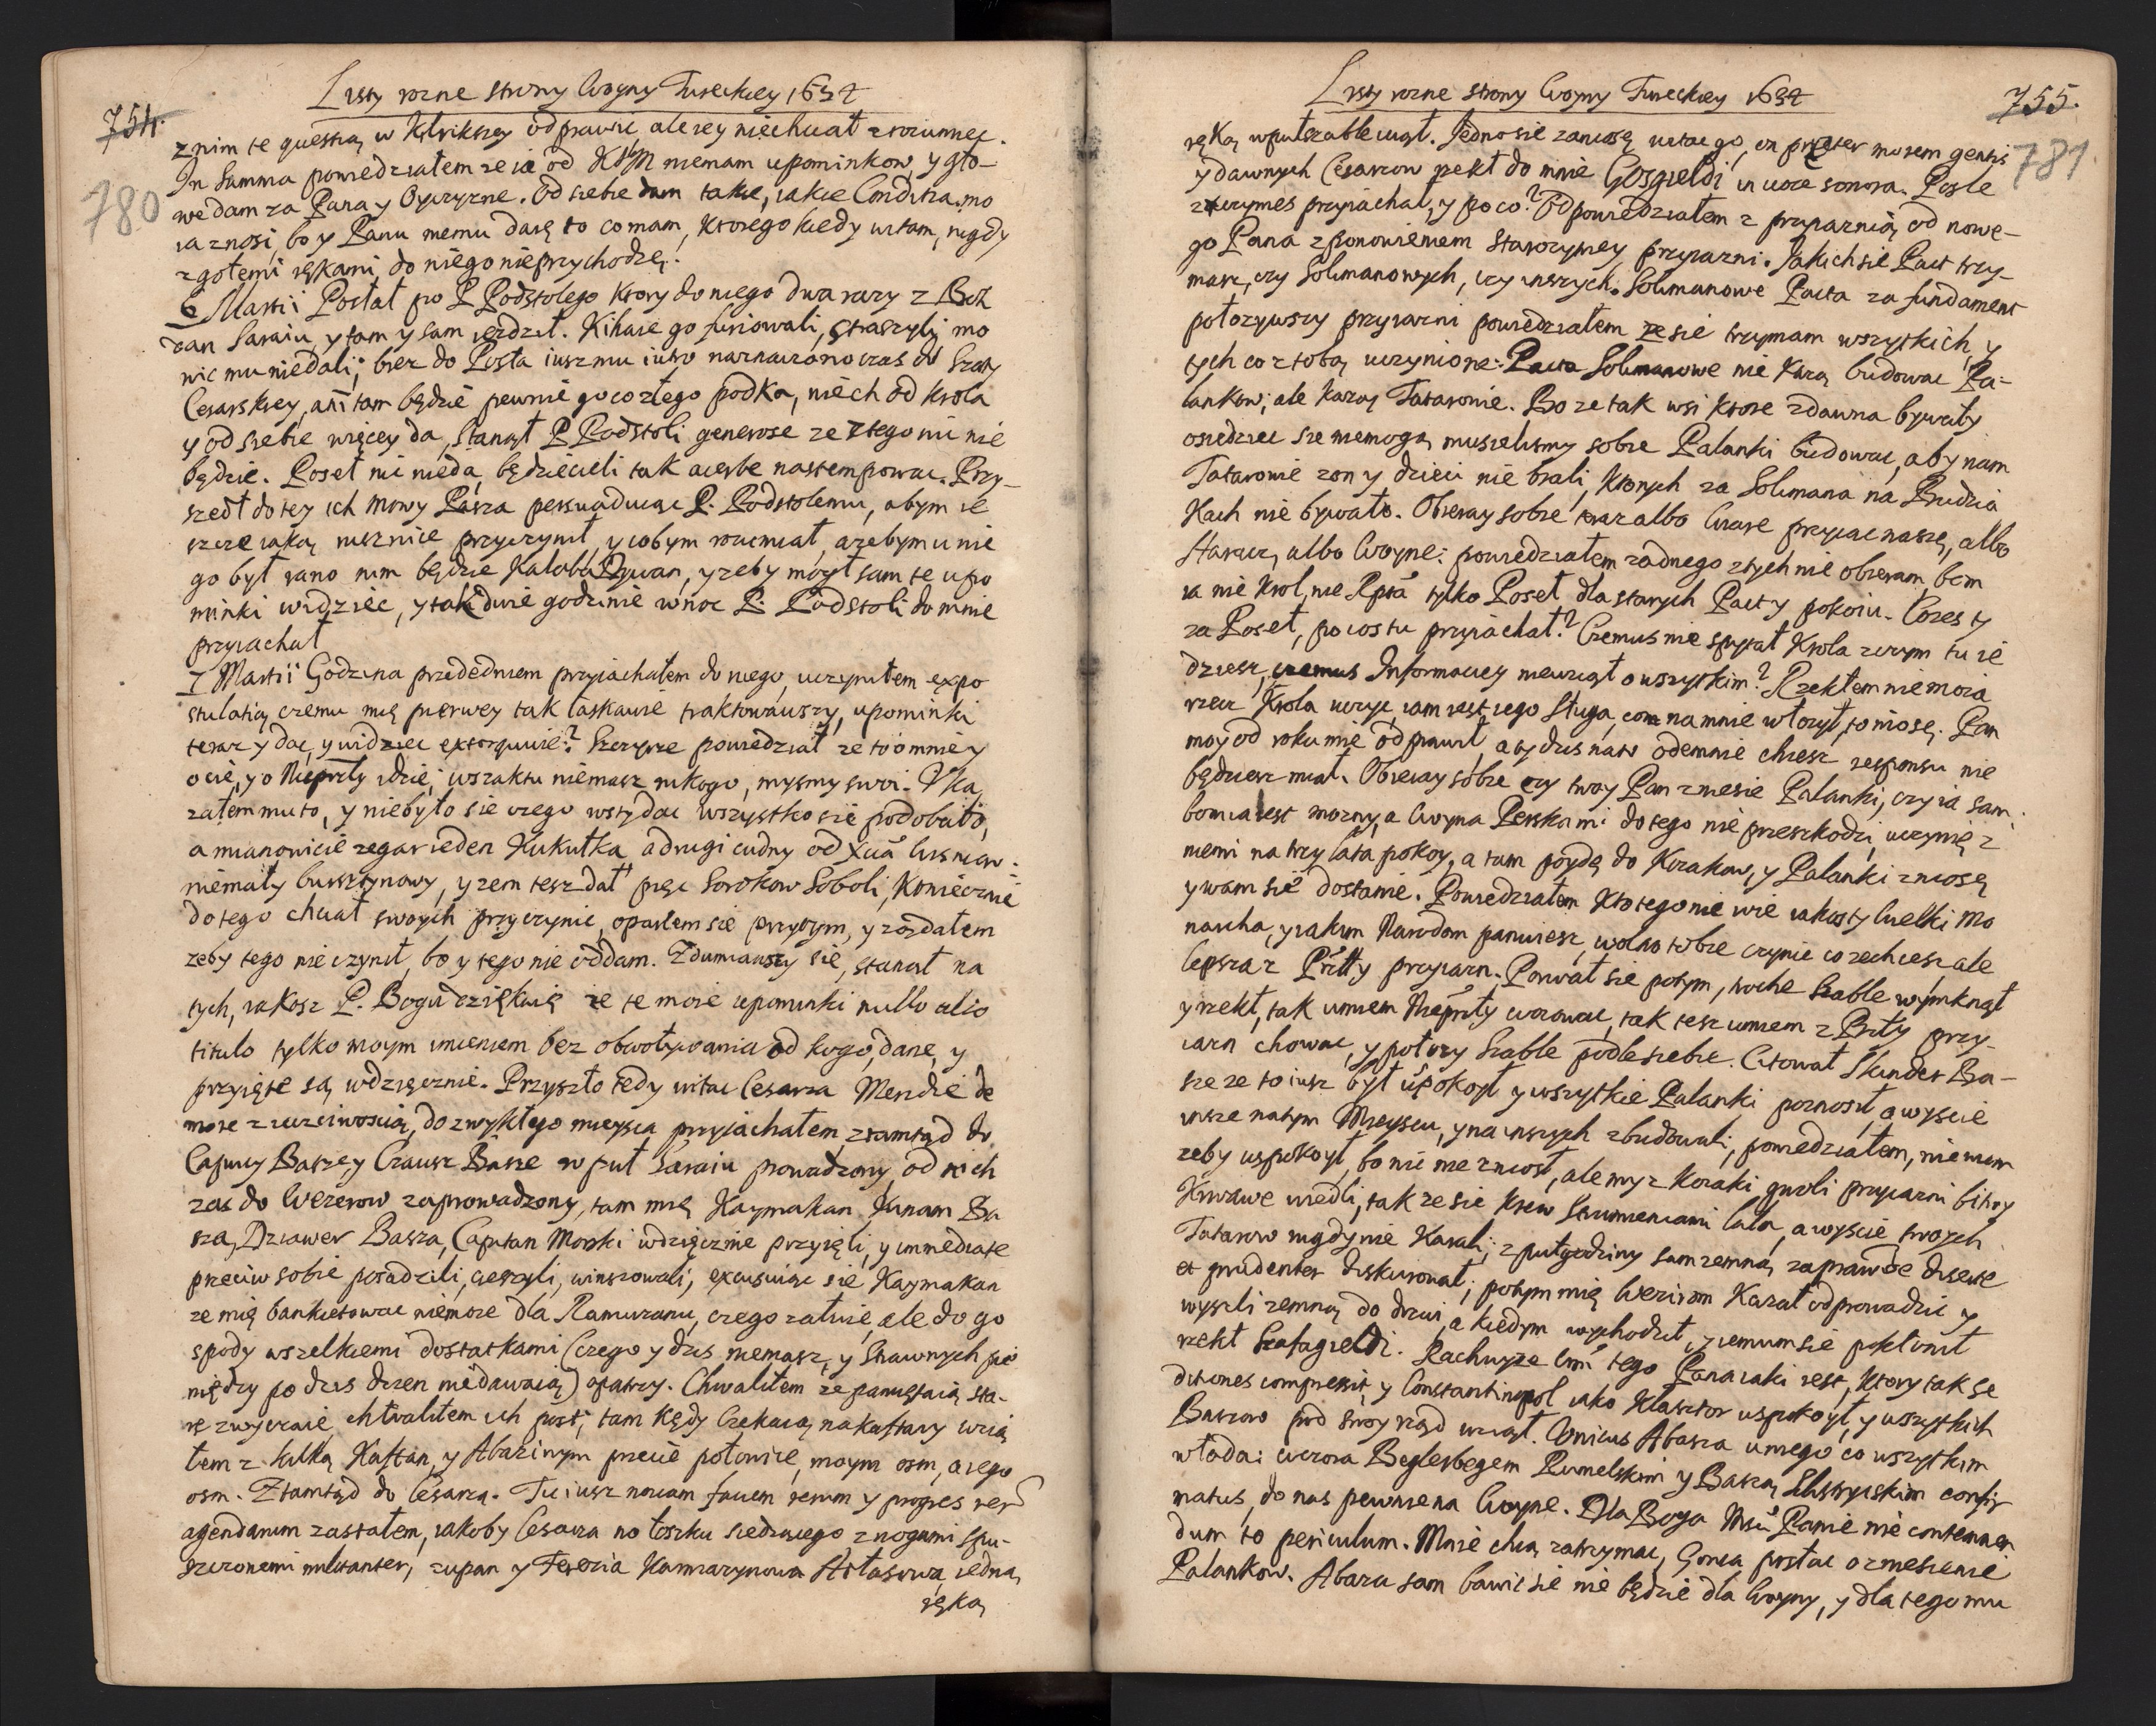 Listy rozne strony Woyny Tureckiey 1634
754.
780
z nim te questią w Kilrikszey odprawić, ale iey niechciał zrozumieć.
In Summa powiedziałem ze ia od KJM niemam upominkow, y gło-
we dam za Pana y Oyczyzne. Od siebie dam takie, iakie Conditia mo
ia znosi, bo y Panu memu daię to co mam, ktorego kiedy witam, nigdy
z gołemi rękami do niego nieprzychodzę.
6 Martii Posłał po P. Podstolego ktory do niego dwa razy z
zan Saraiu, y tam y sam iezdził. Kihaie go furiowali, straszyli, mo
nic mu niedali; bież do Posła iusz mu iutro naznaczono czas do Szaty
Cesarskiey, ani tam będzie pewnie go co złego podka, niech od krola
y od siebie więcey da, stanął P. Podstoli generose ze z tego nic nie
będzie. Poseł nic nieda, będziecieli tak acerbe nastempować. Przy-
szedł do tey ich mowy Pasza persuaduiąc P. Podstolemu, abym ie
szcze iaką rusznice przyczynił, y cobym rozumiał, a zebym u nie
go był rano nim będzie Kalaba Dywan, y zeby mogł sam te upo
minki widziec, y tak dwie godzinie w noc P. Podstoli do mnie
przyiachał
7 Martii Godzina przededniem przyiachałem do niego, uczyniłem expo
stulatią czemu mię pierwey tak łaskawie traktowawszy, upominki
teraz y dac, y widziec extorquuie? Szczyrze powiedział ze to o mnie y
o cie, y o Nieprzty idzie; wszak tu niemasz nikogo, mysmy swoi. Uka
załem mu to, y niebyło sie czego wstydac wszystko sie podobało,
a mianowicie zegar ieden Kukułka, a drugi cudny od Xcia Wisniow.
niemały bursztynowy, y zem tesz dał pięc Sorokow Soboli, Koniecznie
do tego chciał swoych przyczynic, oparłem sie przytym, y zosdałem
zeby tego nie czynił, bo y tego nie oddam. Zdumiawszy sie, stanął na
tych, iakosz P. Bogu dziękuię ze te moie upominki nullo alio
titulo tylko moym imieniem bez obwoływania od kogo, dane, y
przyięte są wdzięcznie. Przyszło tedy witac Cesarza Meridie de
more z uczciwoscią, do zwykłego mieysca przyiachałem, ztamtąd do
Capucy Basze, y Czausz Basze w puł Saraiu prowadzony, od nich
zas do Wezerow zaprowadzony, tam mię Kaymakan Hanam Ba
sza, Dziawer Basza, Capitan Morski wdzięcznie przyięli, y immediate
przeciw sobie posadzili, cieszyli, winszowali, excusuiąc sie Kaymakan
ze mię bankietowac niemoze dla Ramazanu, czego załuie, ale do go
spody wszelkiemi dostatkami (czego y dzis niemasz, y strawnych pie
niędzy po dzis dzien niedawaią) opatrzy. Chwaliłem ze pamiętaią sta-
re zwyczaie, chwaliłem ich post, tam kędy czekaią na kaftany wzią
łem z kilką Kaftan, y Abazinym przecie połowice, moym osm, a iego
osm. Ztamtąd do Cesarza. Tu iusz novam faciem rerum y progres rerum
agendarum zastałem, iakoby Cesarza na łoszku siedzącego, z nogami spu-
szczonemi militanter, zupan y Fererzia Kamzarynowa Atłasowa, iedną
ręką
Listy rozne strony Woyny Tureckiey 1634
755.
781.
ręką w puł szable uiął. Jedno sie zaniosę witac go, on praeter morem gentis
y dawnych Cesarzow rzekł do mnie Gosgieldi in voce sonora. Posle
z czymes przyiachał, y po co? Odpowiedziałem z przyiaznią od nowe-
go Pana z ponowieniem starozytney przyiazni. Jakich sie Pact trzy-
masz, czy Solimanowych, czy inszych. Solimanowe Pacta za fundament
połozywszy przyiazni powiedziałem ze sie trzymam wszytkich, y
tych co z tobą uczynione: Pacta Solimanowe nie kazą budowac Pa-
lankow; ale kazą Tatarowie. Bo ze tak wsi ktore zdawna bywały
osiedziec sie niemogą musielismy sobie Palanki budowac, aby nam
Tatarowie zon y dzieci nie brali, ktorych za Solimana na Budzia
kach nie bywało. Obieray sobie teraz albo Wiare przyiac naszę, albo
Haracz, albo Woyne: powiedziałem zadnego z tych nie obieram, bom
ia nie Krol, nie Rpta tylko Poseł dla starych Pact y pokoiu. Cozes ty
za Poseł, po cos tu przyiachał? Czemus nie spytał Krola z czym tu ie
dziesz, czemus Informaciey niewziął o wszytkim? Rzekłem nie moia
rzecz Krola uczyc, iam iest iego Sługa, co na mnie włozył, to niosę. Pan
moy od roku mie odprawił, a ty dzis nato odemnie chcesz responsu nie
będziesz miał. Obieray sobie czy twoy Pan zniesie Palanki, czy ia sam.
bom ia iest mozny, a Woyna Perska mi do tego nie przeszkodzi, uczynię z
niemi na trzy lata pokoy, a tam poydę do Kozakow, y Palanki zniosę
y wam sie dostanie. Powiedziałem kto tego nie wie iakos ty Wielki Mo
narcha, y iakim Narodom panuiesz, wolno tobie czynic co zechcesz ale
lepsza z Przty przyiazn. Porwał sie potym, troche Szable wymknął
y rzekł, tak umiem Nieprzty woiowac, tak tesz umiem z Przty przy-
iazn chowac, y połozy Szable podle siebie. Citował Skinder Ba-
sze ze to iusz był uspokoył y wszytkie Palanki poznosił, a wyscie
insze natym Mieyscu, y na inszych zbudowali; powiedziałem, nie wiem
zeby uspokoył, bo nic nie zniosł, ale my z Kozaki gwoli przyiazni bitwy
krwawe wiedli, tak ze sie krew strumieniami lała, a wyscie swoych
Tatarow nigdy nie karali; z puł godziny sam zemną zaprawde diserte
et prudenter diskurował; potym mię Wezirom kazał odprowadzic y
wyszli zemną do drzwi, a kiedym wychodził, y iemum sie pokłonił
rzekł Szafagieldi. Rachuyze Wmć tego Pana iaki iest, ktory tak se
ditiones compressit, y Constantinopol iako Klasztor uspokoył, y wszytkich
Baszow pod swoy rząd wziął. Unicus Abasza u niego co wszytkim
włada: wczora Beglerbegem Rumelskim y Baszą Silistryiskim confir
matus, do nas pewnie na Woyne. Dla Boga Mści Panie nie contemnen
dum to periculum. Mnie chcą zatrzymac, Gonca posłac o zniesienie
Palankow. Abaza sam bawic sie nie będzie dla Woyny, y dla tego mu